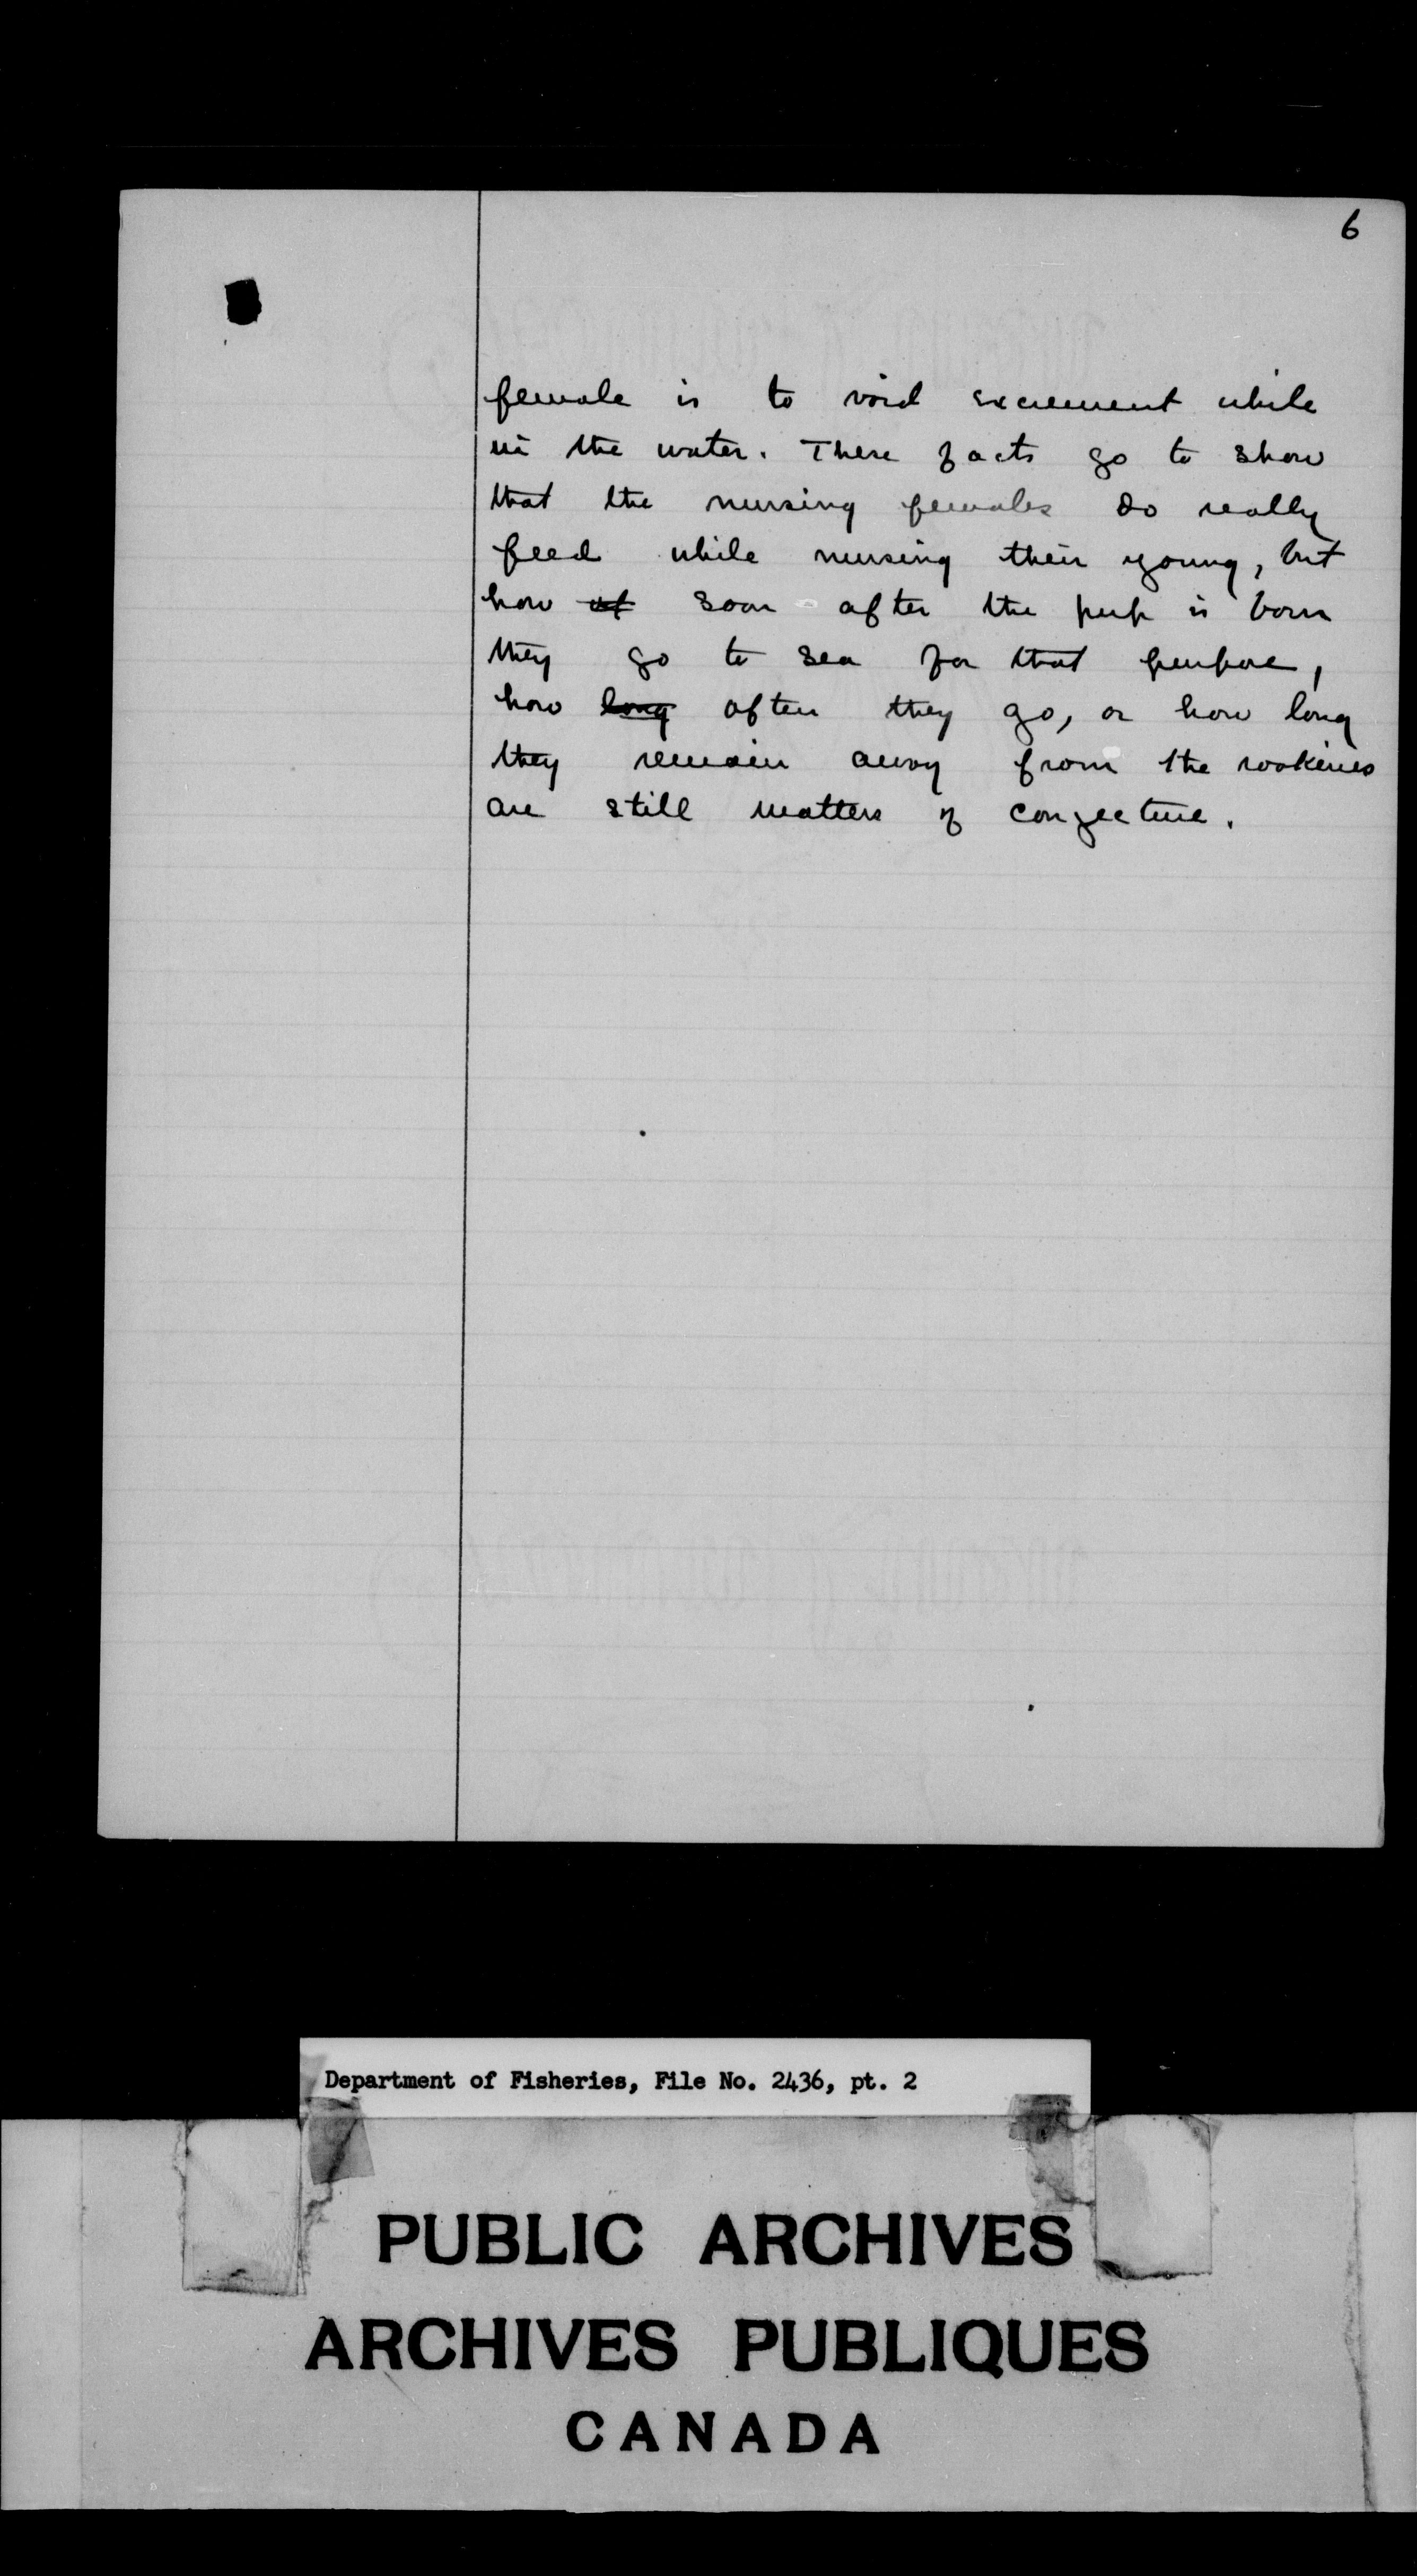 6
female is to void excrement while
in the water. These facts go to show
that the nursing females do really
feed while nursing their young, but
how soon after the pup is born
they go to sea for that purpose,
how long often they go, or how long
they remain away from the rookeries
are still matters of conjecture.
Department of Fisheries, File No. 2436, pt. 2
PUBLIC ARCHIVES
ARCHIVES PUBLIQUES
CANADA